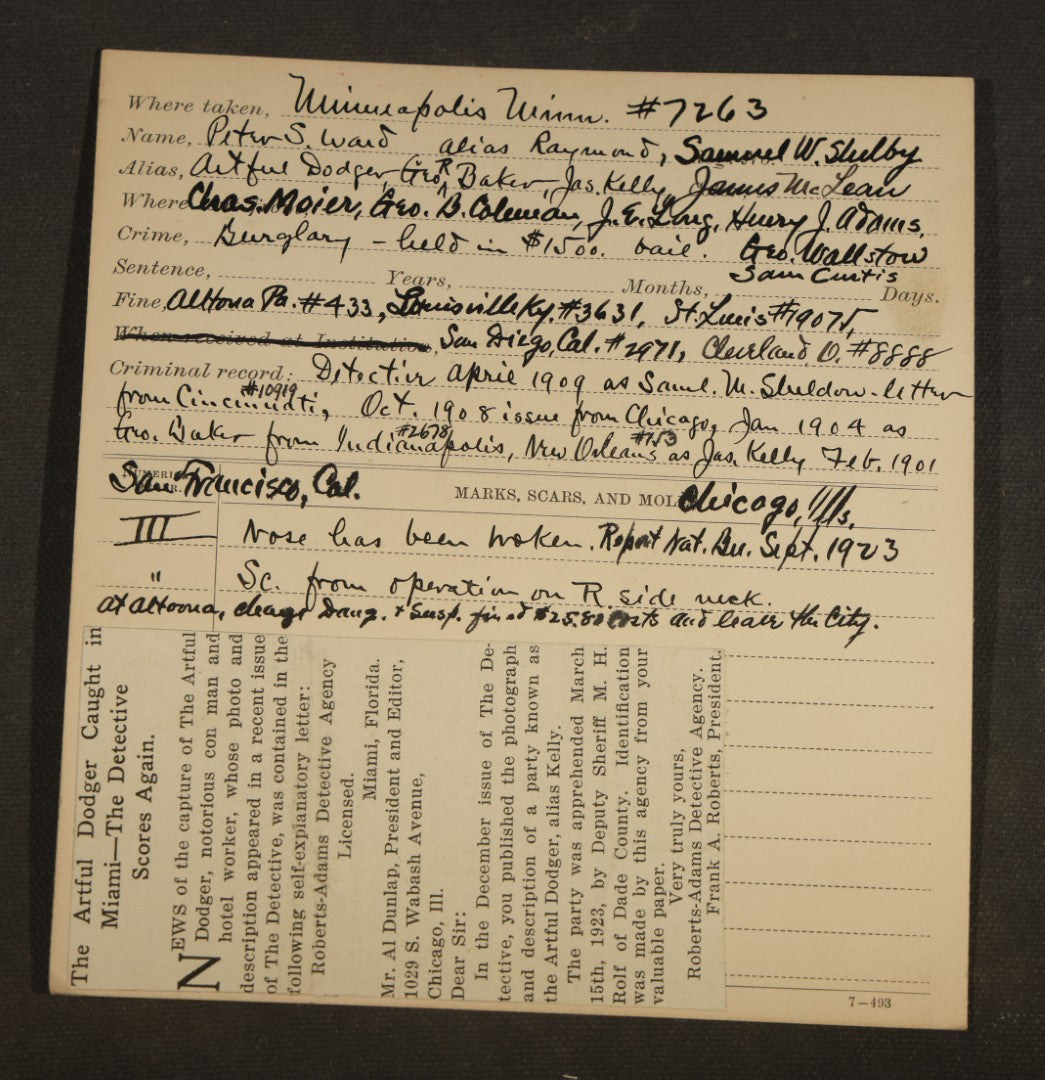 Where taken, Minneapolis Minn. #7263
Name, Peter S. Ward alias Raymond, Samuel W. Shelby
Alias, Artful Dodger, Geo. R Baker, Jas. Kelly, James McLean
Where Chas. Moier, Geo. B. Coleman, J. E. Long, Henry J. Adams,
Crime, Burglary – held in $1500. bail. Geo. Wallstow
Sam Curtis
Sentence, Years, Months, Days.
Fine, Altona Pa. #433, Louisville Ky. #3631, St. Louis #19075,
When received at Institution, San Diego, Cal. #2971, Cleveland O. #8888
Criminal record: Detective April 1909 as Saml. M. Sheldow - letter
from Cincinnati, #10919 Oct. 1908 issue from Chicago, Jan 1904 as
Geo. Baker from Indianapolis, #2678 New Orleans #753 as Jas. Kelly Feb. 1901
San Francisco, Cal. MARKS, SCARS, AND MOL Chicago, Ills,
III Nose has been broken. Report Nat. Bu. Sept. 1923
" Sc. from operation on R. side neck.
At Altoona, charge Dang. & Susp. fined $25.80 costs and leave the City.
The Artful Dodger Caught in
Miami—The Detective
Scores Again.
NEWS of the capture of The Artful
Dodger, notorious con man and
hotel worker, whose photo and
description appeared in a recent issue
of The Detective, was contained in the
following self-explanatory letter:
Roberts-Adams Detective Agency
Licensed.
Miami, Florida.
Mr. Al Dunlap, President and Editor,
1029 S. Wabash Avenue,
Chicago, Ill.
Dear Sir:
In the December issue of The De-
tective, you published the photograph
and description of a party known as
the Artful Dodger, alias Kelly.
The party was apprehended March
15th, 1923, by Deputy Sheriff M. H.
Rolf of Dade County. Identification
was made by this agency from your
valuable paper.
Very truly yours,
Roberts-Adams Detective Agency.
Frank A. Roberts, President.
7—493